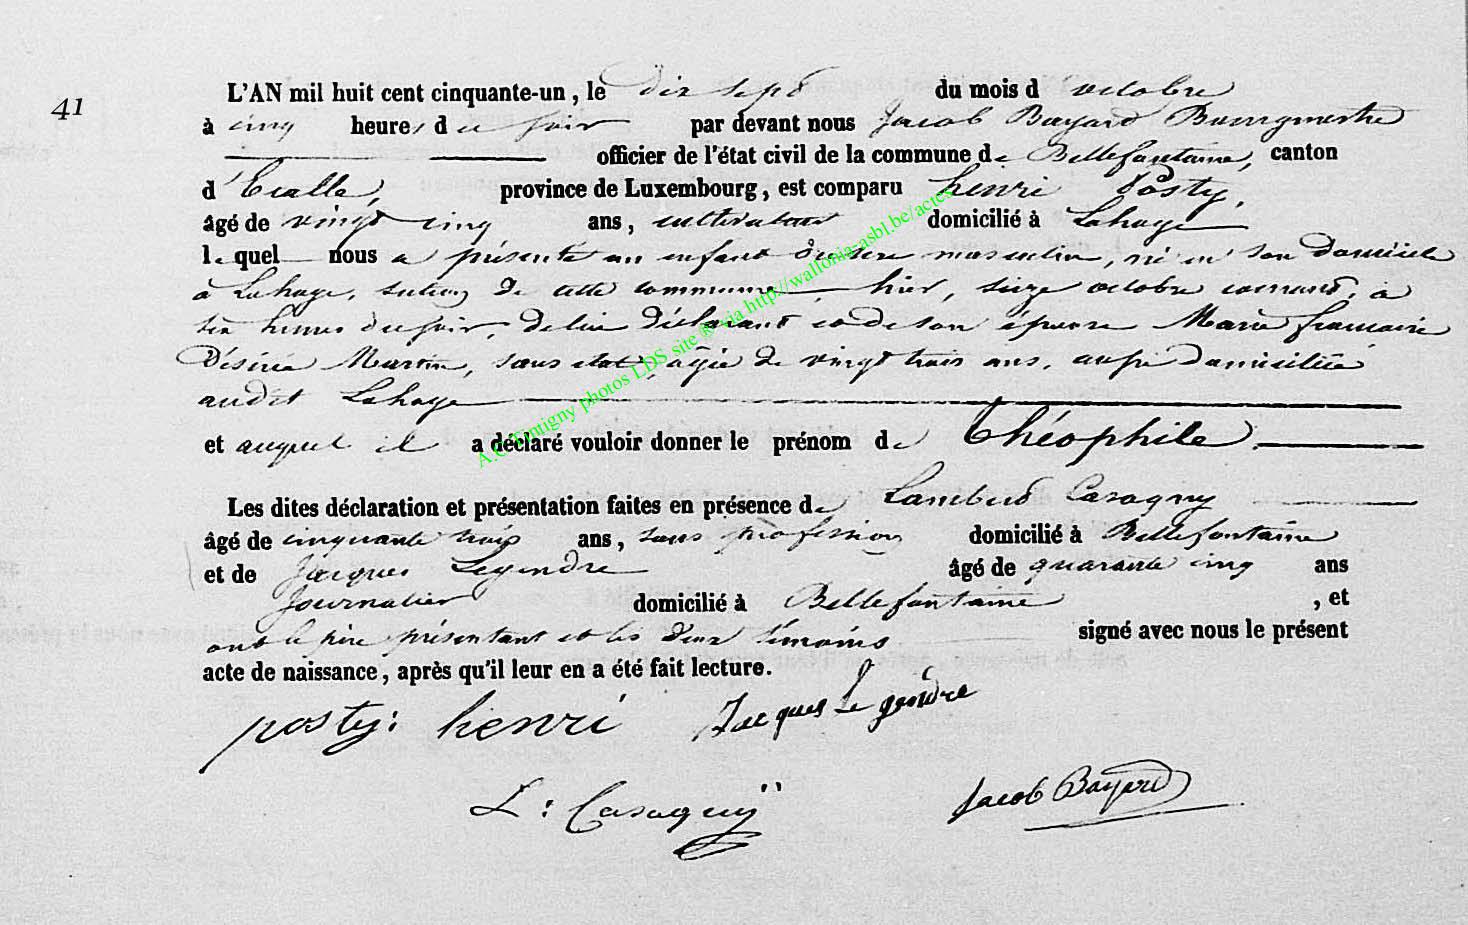 41
L'AN mil huit cent cinquante-un, le dix sept du mois d'octobre
à cinq heures du soir par devant nous Jacob Bayard Bourgmestre
officier de l'état civil de la commune de Bellefontaine, canton
d'Etalle, province de Luxembourg, est comparu henri Posty,
âgé de vingt cinq ans, cultivateur domicilié à Lahage
lequel nous a présenté un enfant du sexe masculin, né en son domicile
à Lahage, section de cette commune, hier, seize octobre courant, à
six heures du soir, de lui déclarant et de son épouse Marie françoise
Désirée Martin, sans état, agée de vingt trois ans, aussi domiciliée
audit Lahage
et auquel il a déclaré vouloir donner le prénom de Théophile
Les dites déclaration et présentation faites en présence de Lambert Casaquy
âgé de cinquante trois ans, sans profession domicilié à Bellefontaine
et de Jacques Legendre âgé de quarante cinq ans
Journalier domicilié à Bellefontaine, et
ont le père présentant et les deux témoins signé avec nous le présent
acte de naissance, après qu'il leur en a été fait lecture.
posty: henri Jacques Le gendre
L: Casaquÿ Jacob Bayard
A.C. Tintigny photos LDS site ® via http://wallonia-asbl.be/actes